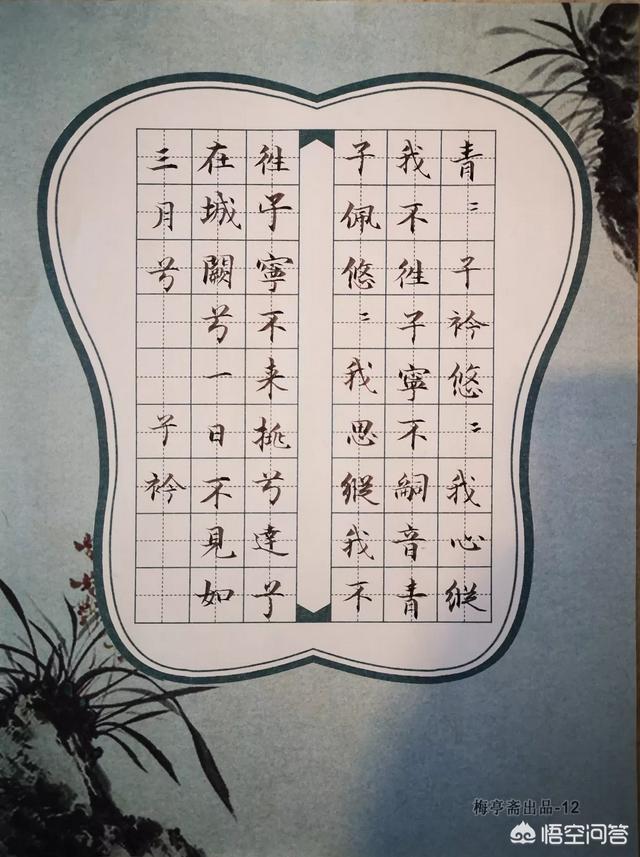 青〻子衿悠〻我心縱
我不徃子寧不嗣音青
子佩悠〻我思縱我不
徃子寧不来挑兮達兮
在城闕兮一日不見如
三月兮
子衿
梅亭斋出品-12
悟空问答